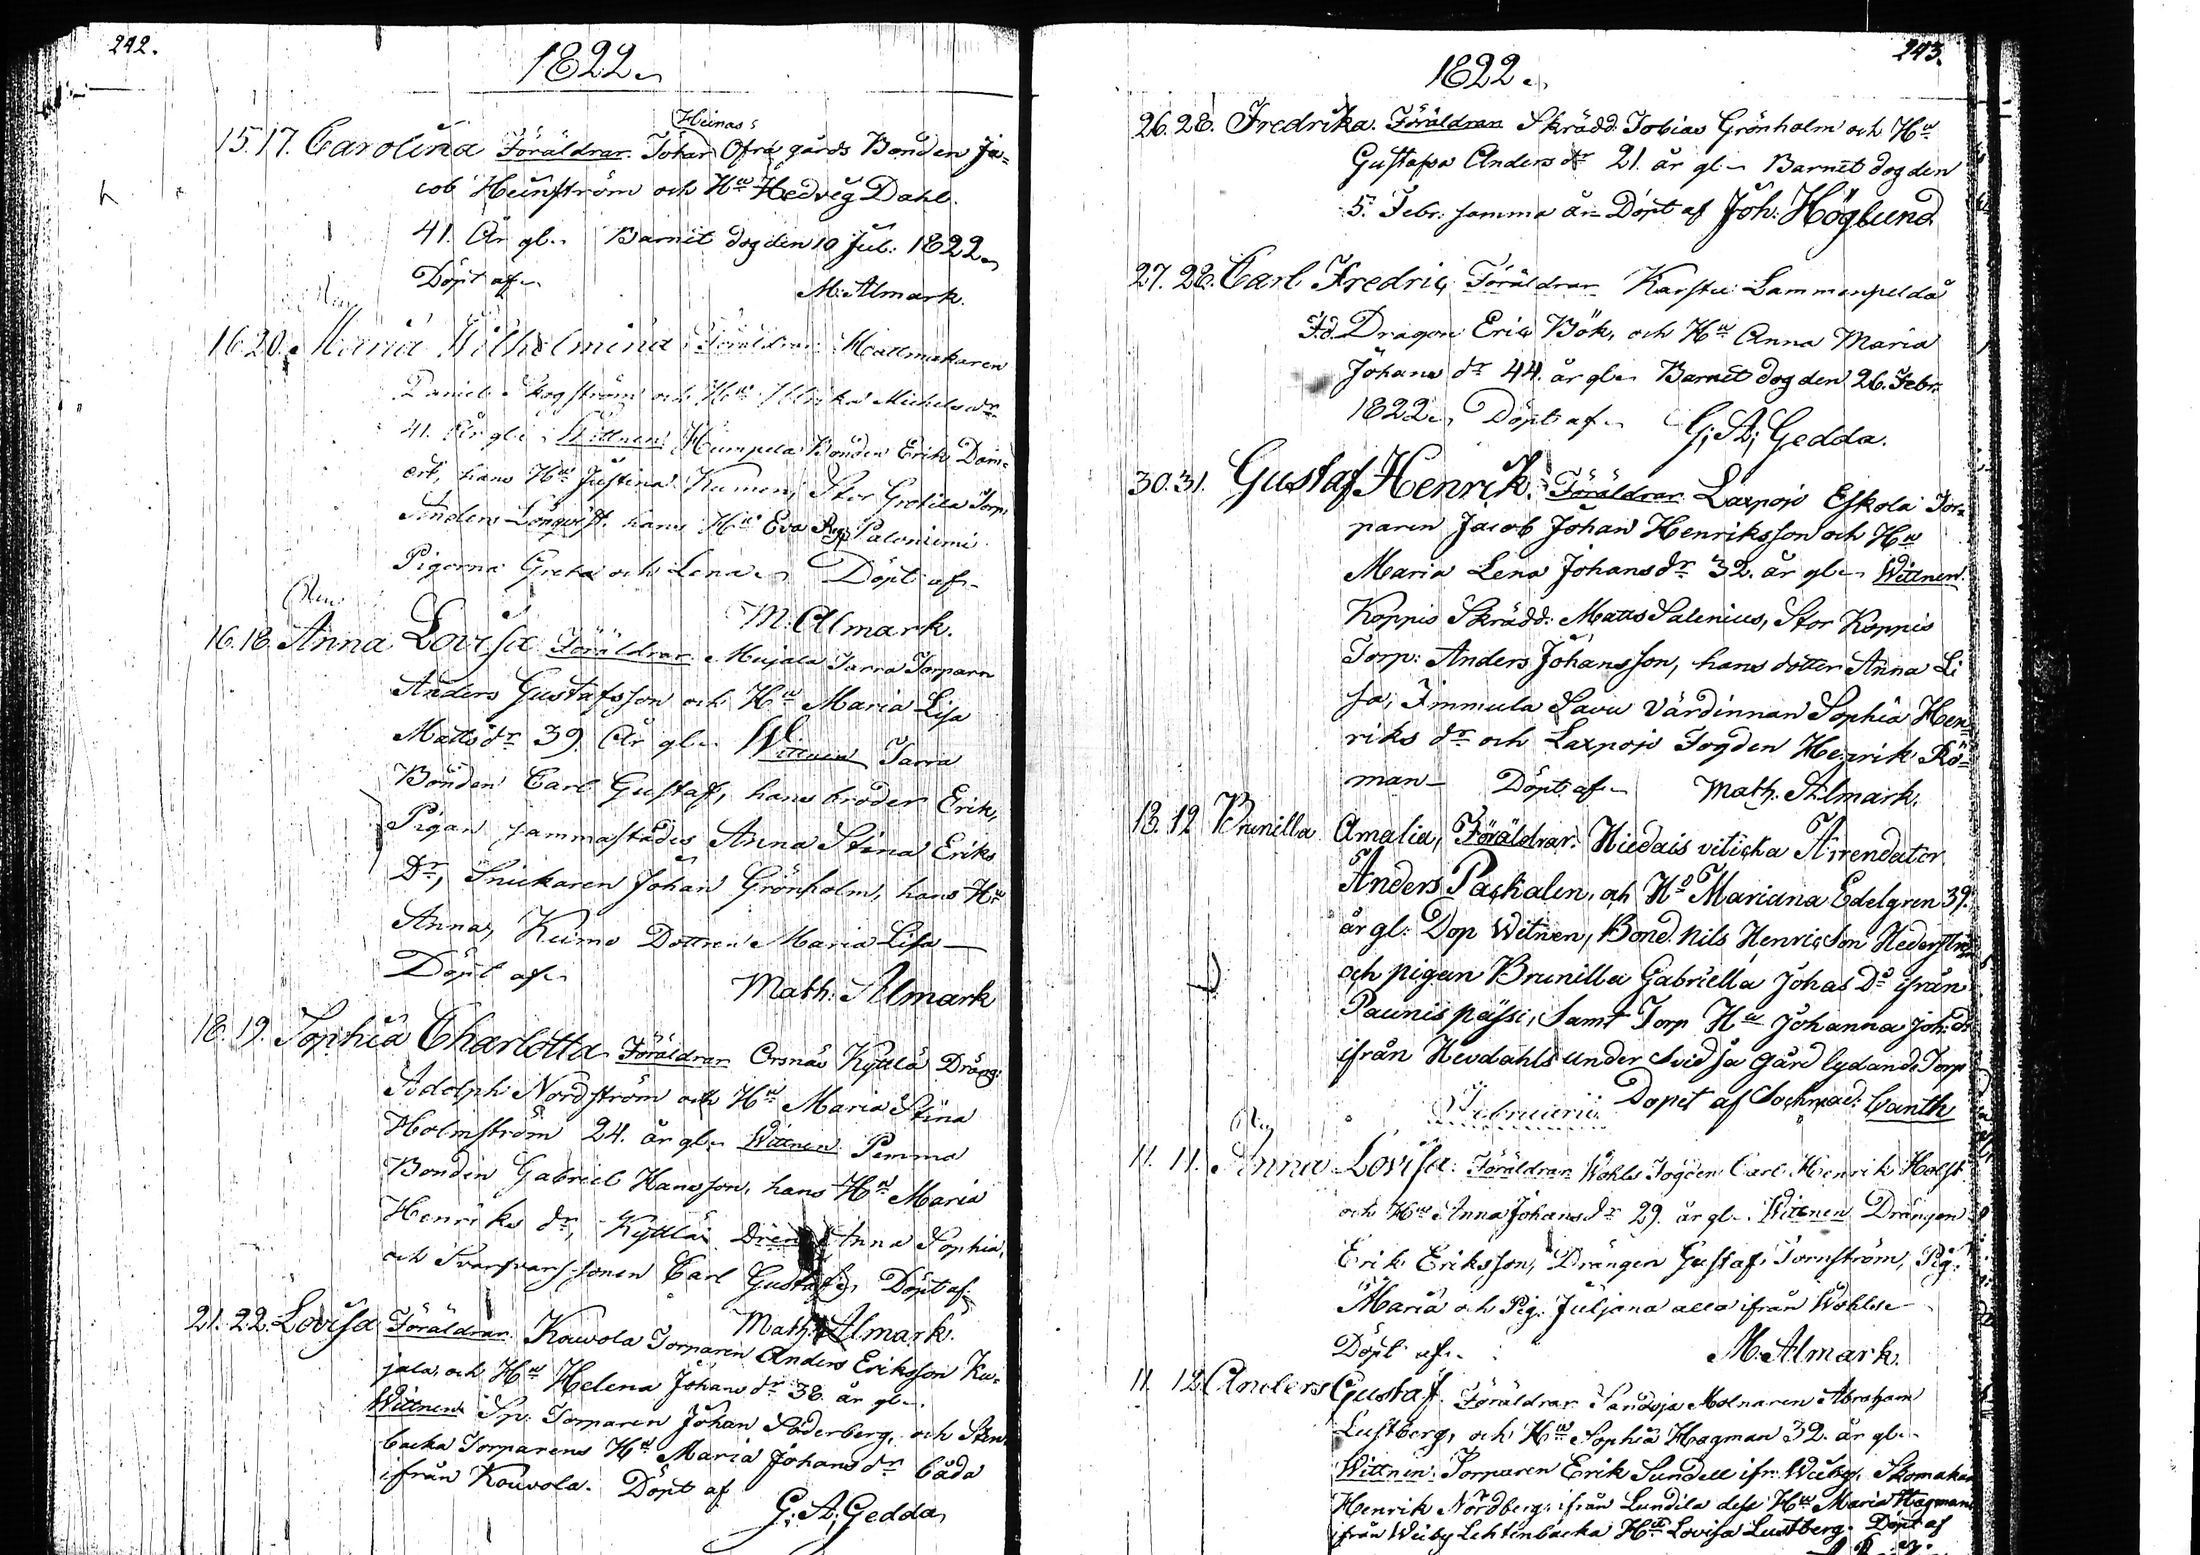 242.
1822
Heinas
15. 17. Carolina Föräldrar. Johan Ofra gårds Bonden Ja=
cob Heinström och Hu Hedvig Dahl.
41. År gl. Barnet dog den 10 Jul: 1822
Döpt af
M: Almark.
16. 20. Maria Wilhelmina Föräldrar Hattmakaren
Daniel Skogström och Hu Ulrika Michelsdr
41. År gl. Wittnen Humpela Bonden Erik Dani=
ert, hans Hu Justina Kumeni, Stor Grotila Torp.
Anders Lönqvist. hans Hu Eva Paloniemi
Pigorna Greta och Lena Döpt af
M: Almark.
16. 18. Anna Lovisa Föräldrar Mujala Jarra Torparn
Anders Gustafsson och Hu Maria Lisa
Matts dr 39. År gl. Wittnen Jarra
Bonden Carl Gustaf, hans broder Erik,
Pigan sammastädes Anna Stina Eriks
Dr, Snickaren Johan Grönholm, hans Hu
Anna, Keimo Dottren Maria Lisa
Döpt af
Math: Almark
18. 19. Sophia Charlotta Föräldrar Orsnäs Kyttlä Dräng:
Adolph Nordström och Hu Maria Stina
Holmström 24. år gl. Wittnen Pemma
Bonden Gabriel Hansson, hans Hu Maria
Henriks dr, Kyttlä Anna Sophia,
och Carl Gustaf Döpt af
Math: Almark.
21. 22. Lovisa Föräldrar Kouvola Torparen Anders Eriksson Ku=
jala, och Hu Helena Johans dr 38. år gl.
Wittnen Sp: Torparen Johan Söderberg, och Sten
backa Torparens Hu Maria Johans dr båda
ifrån Kouvola. Döpt af
G: A: Gedda
243.
1822
26. 28. Fredrika. Föräldrar Skrädd. Tobias Grönholm och Hu
Gustafva Anders dr 21. år gl. Barnet dog den
5. Febr: samma år Döpt af Joh: Höglund
27. 28. Carl Fredric Föräldrar Karstu Lammenpelda
Fd. Dragon Eric Bök, och Hu Anna Maria
Johans dr 44. år gl. Barnet dog den 26. Febr:
1822 Döpt af G: A: Gedda.
30. 31. Gustaf Henrik. Föräldrar Laxpojo Eskola Tor=
paren Jacob Johan Henriksson och Hu
Maria Lena Johans dr 32. år gl. Wittnen.
Koppis Skrädd: Matts Salenius, Stor Koppis
Torp: Anders Johansson, hans dotter Anna Li
sa, Immula Savu värdinnan Sophia Hen=
riks dr och Laxpojo Fogden Henrik Rö=
man Döpt af Math. Almark.
13. 19 Brunilla Amalia, Föräldrar. Hiedais viticka Arrendator
Anders Paskalin, och Ho Mariana Edelgren 39.
år gl: Dop Witnen, Bond. Nils Henricson Hederström
och pigan Brunilla Gabriella Johas Do ifrån
Paunis pässi, Samt Torp Hu Johanna joh: dr
ifrån Hevdahls under Svidja Gård lydande Torp
Döpet af Sochnad: Canth
Februarii.
11. 11. Anna Lovisa. Föräldrar Wohls Fogden Carl Henrik Holst
och Hu Anna Johans dr 29. år gl. Wittnen Drängen
Erik Eriksson, Drängen Gustaf Tornström, Pig:
Maria och Pig. Juljana alla ifrån Wohls
Döpt af
M: Almark.
11. 12. Anders Gustaf. Föräldrar Sandsja Molnaren Abraham
Lustberg, och Hu Sophia Hagman 32. år gl.
Wittnen: Torparen Erik Sundell ifr: Wiuby, Skomakar
Henrik Nordberg. ifrån Lundila dess Hu Maria Hagman
ifrån Wiuby Lehtenbacka Hu Lovisa Lustberg. Döpt af